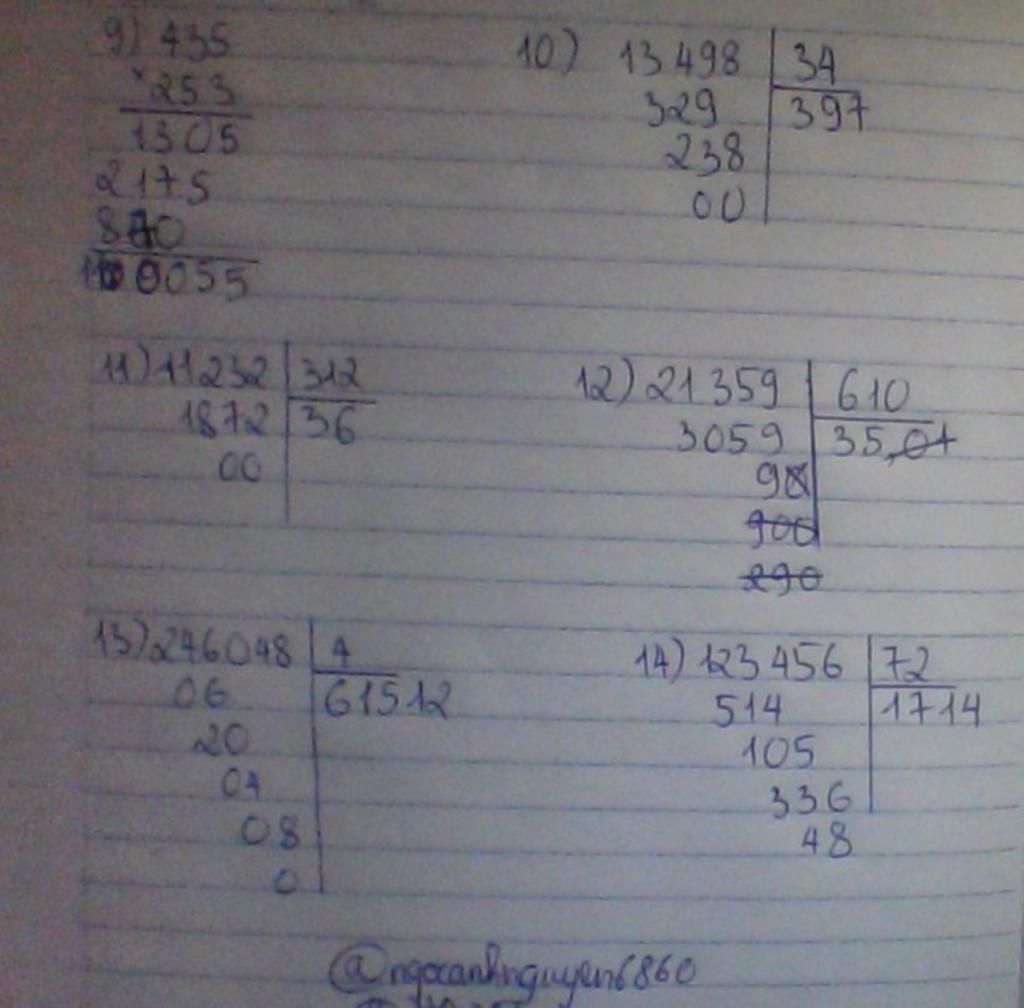 9) 435
× 253
1305
2175
870
110055
10) 13498 34
329 397
238
00
11) 11232 312
1872 36
00
12) 21359 610
3059 35,01
9
900
290
13) 246048 4
06 61512
20
04
08
0
14) 123456 72
514 1714
105
336
48
@ngocanhnguyen6860